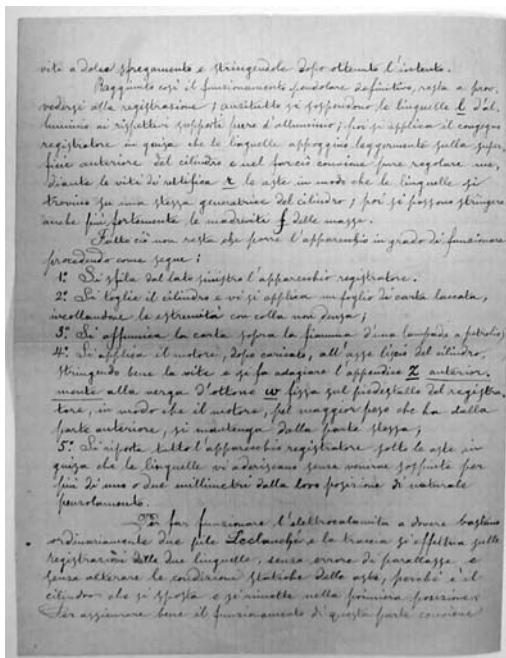 viti a dolce sfregamento e stringendole dopo ottenuto l'intento.
Raggiunto così il funzionamento pendolare definitivo, resta a prov-
vedersi alla registrazione; anzitutto si sospendono le linguelle l d'al-
luminio ai rispettivi supporti pure d'alluminio; poi si applica il congegno
registratore in guisa che le linguelle appoggino leggermente sulla super-
ficie anteriore del cilindro e nel far ciò conviene pure regolare me-
diante le viti di rettifica r le aste in modo che le linguelle si
trovino su una stessa generatrice del cilindro; poi si possono stringere
anche più fortemente le madreviti f delle masse.
Fatto ciò non resta che porre l'apparecchio in grado di funzionare
procedendo come segue:
1.° Si sfila dal lato sinistro l'apparecchio registratore.
2.° Si toglie il cilindro e vi si applica un foglio di carta laccata,
incollandone le estremità con colla non densa;
3.° Si affumica la carta sopra la fiamma d'una lampada a petrolio;
4.° Si applica il motore, dopo caricato, all'asse liscio del cilindro,
stringendo bene la vite e si fa adagiare l'appendice Z anterior-
mente alla verga d'ottone w fissa sul piedestallo del registra-
tore, in modo che il motore, pel maggior peso che ha dalla
parte anteriore, si mantenga dalla parte stessa;
5.° Si riporta tutto l'apparecchio registratore sotto le aste in
guisa che le linguelle vi aderiscano senza venirne sospinte per
più di uno o due millimetri dalla loro posizione di naturale
penzolamento.
Per far funzionare l'elettrocalamita a dovere bastano
ordinariamente due pile Leclanché e la traccia si effettua sulle
registrazioni delle due linguelle, senza errore di parallasse, e
senza alterare le condizioni statiche delle aste, perché è il
cilindro che si sposta e si rimette nella primiera posizione.
Per assicurare bene il funzionamento di questa parte conviene